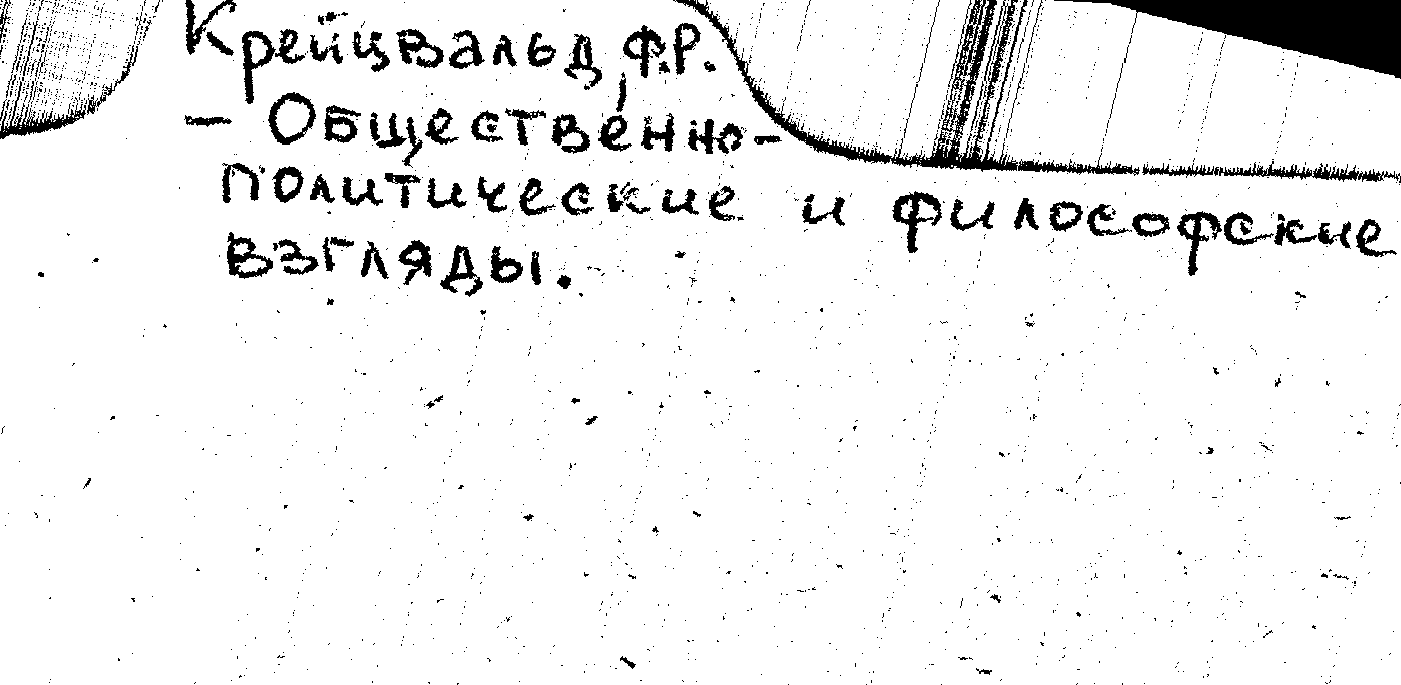 Крейцвальд, Ф.Р.
– Общественно-
политические и философские
взгляды.